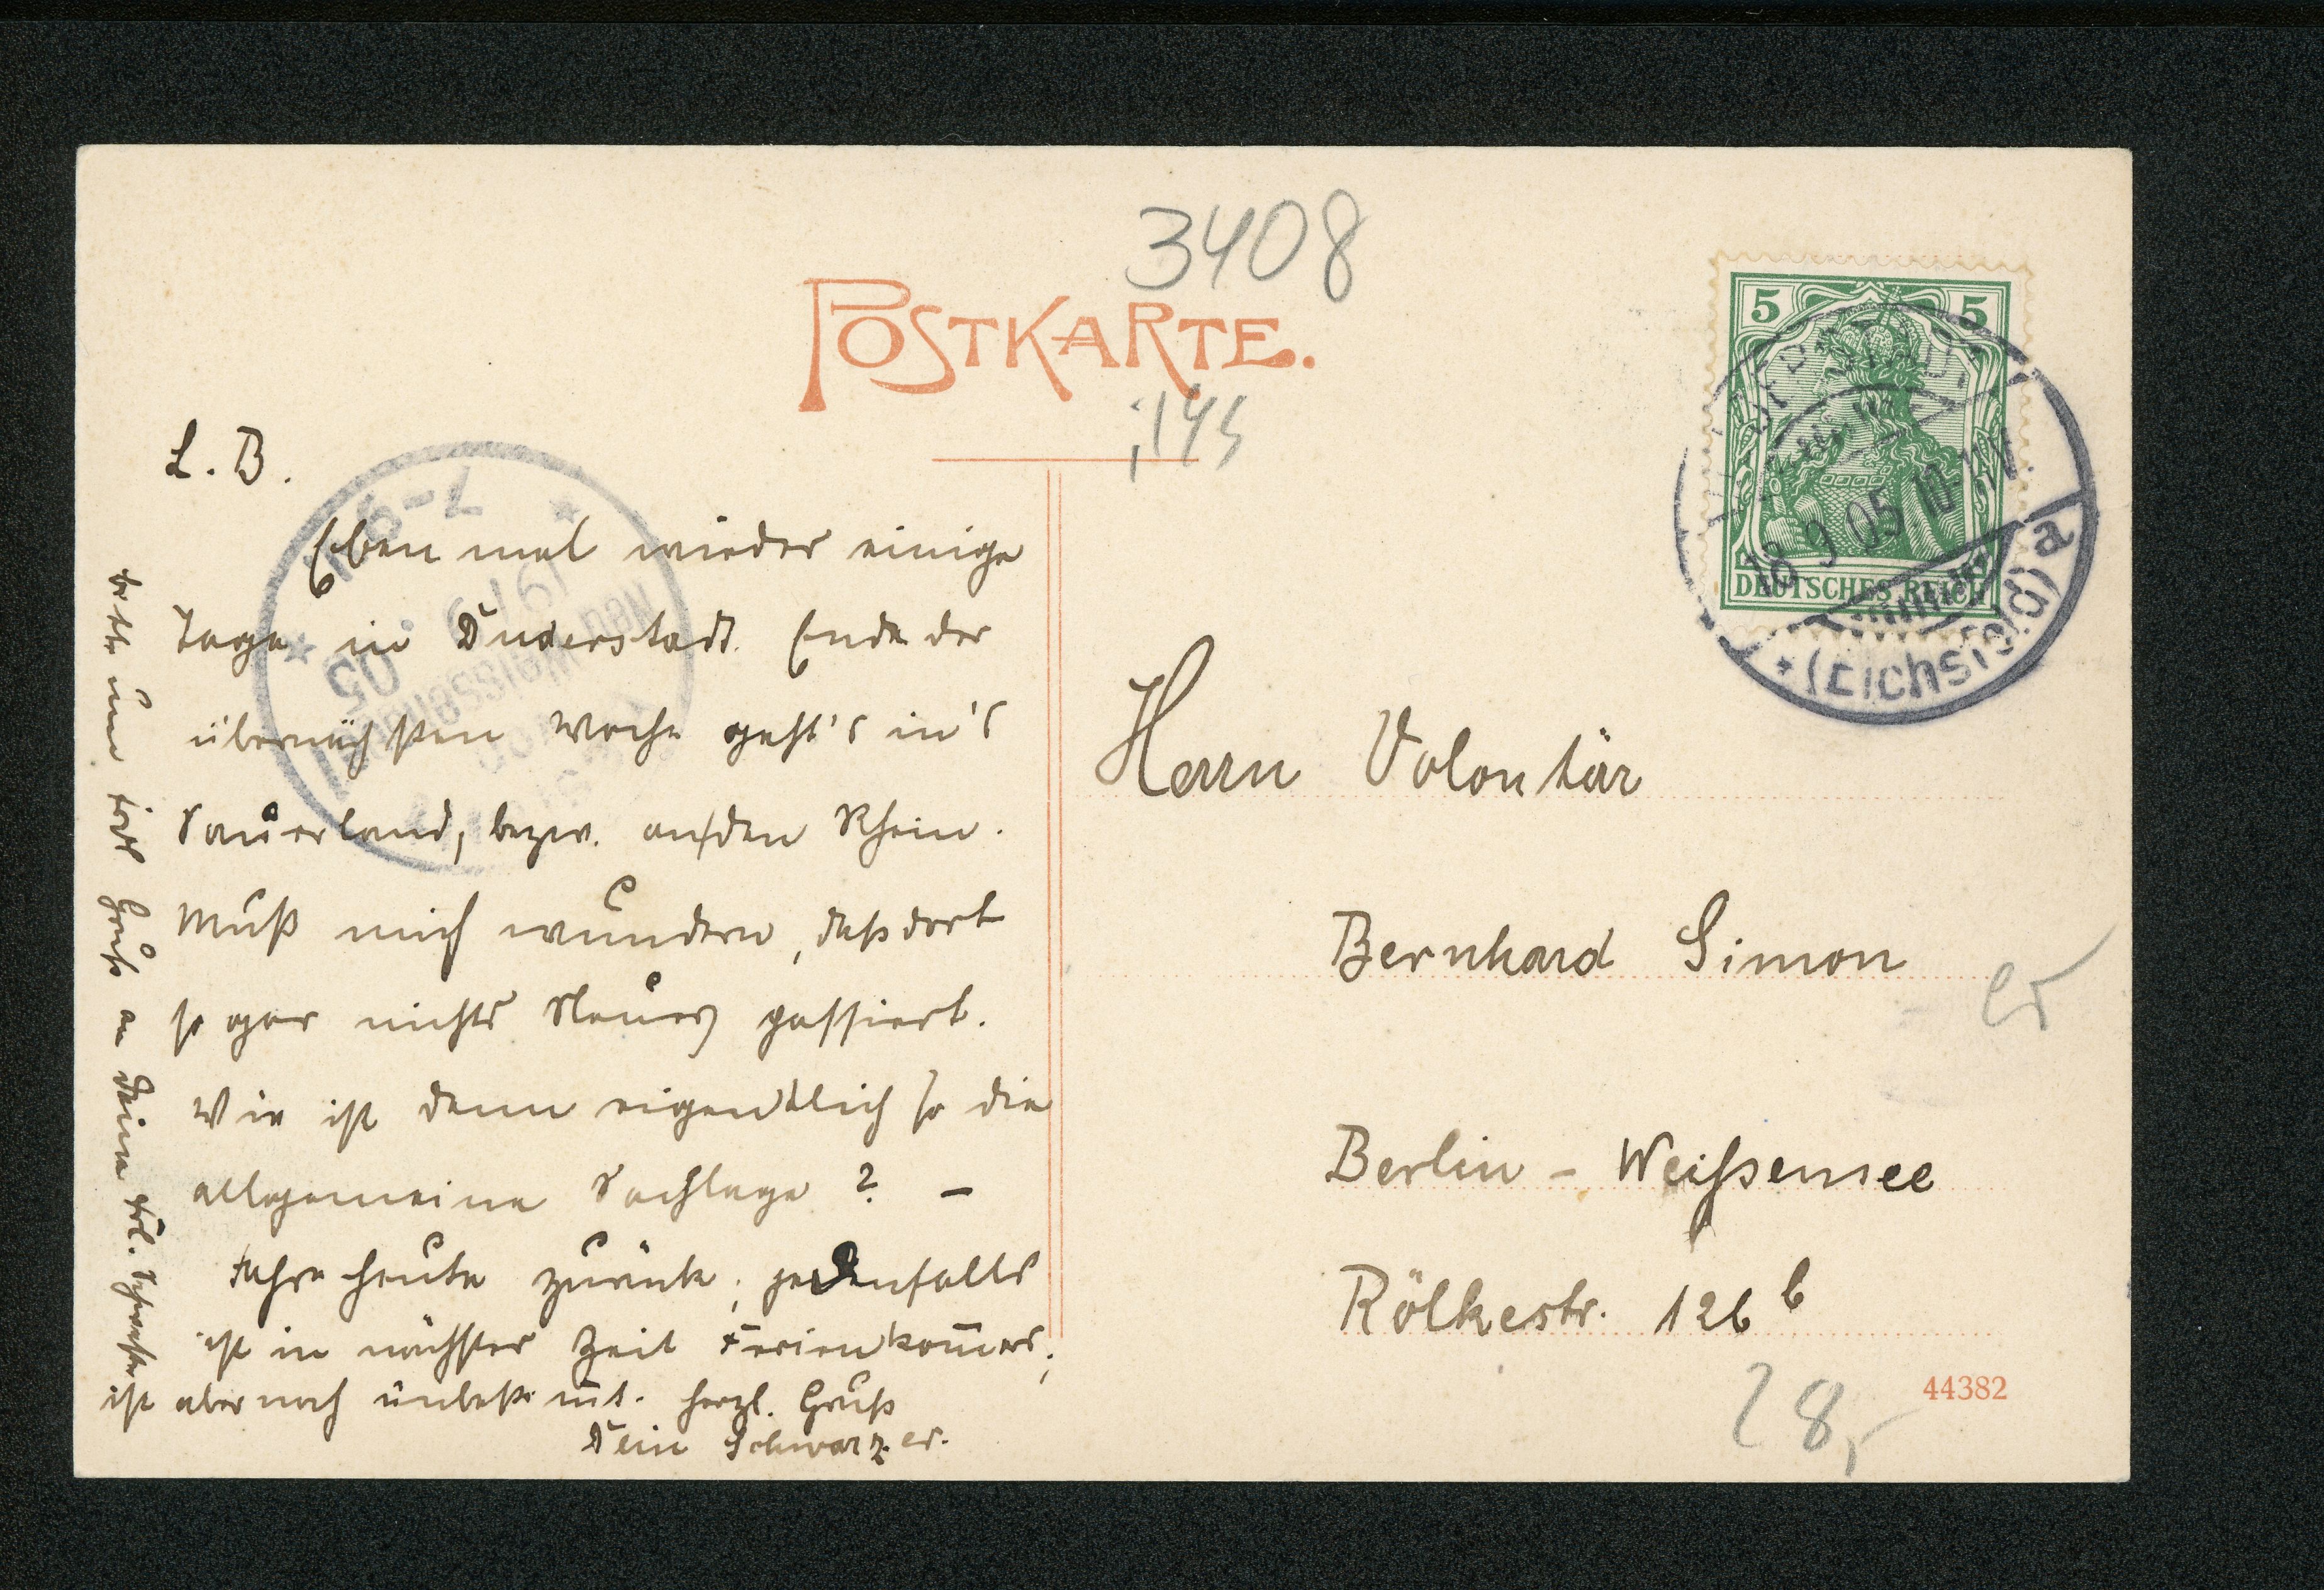 3408
POSTKARTE.
5 5
DEUTSCHES REICH
18 9 05 10-11V.
(Eichsfeld) a
7-9
19/9
05
L. B.
Eben mal wieder einige
Tage in Duderstadt. Ende der
übernächsten Woche geht's in's
Sauerland, bezw. an den Rhein.
Muß mich wundern, daß dort
so gar nichts Neues passiert.
Wie ist denn eigentlich so die
allgemeine Sachlage? –
Fahre heute zurück; jedenfalls
ist in nächster Zeit Ferienkom̅ers;
ist aber noch unbestim̅t. Herzl. Gruß
Dein Schwarzer.
bitte um Gruß an Deine Frl. Schwester
Herrn Volontär
Bernhard Simon
Berlin – Weißensee
Rölkestr. 126 b
28,-
44382